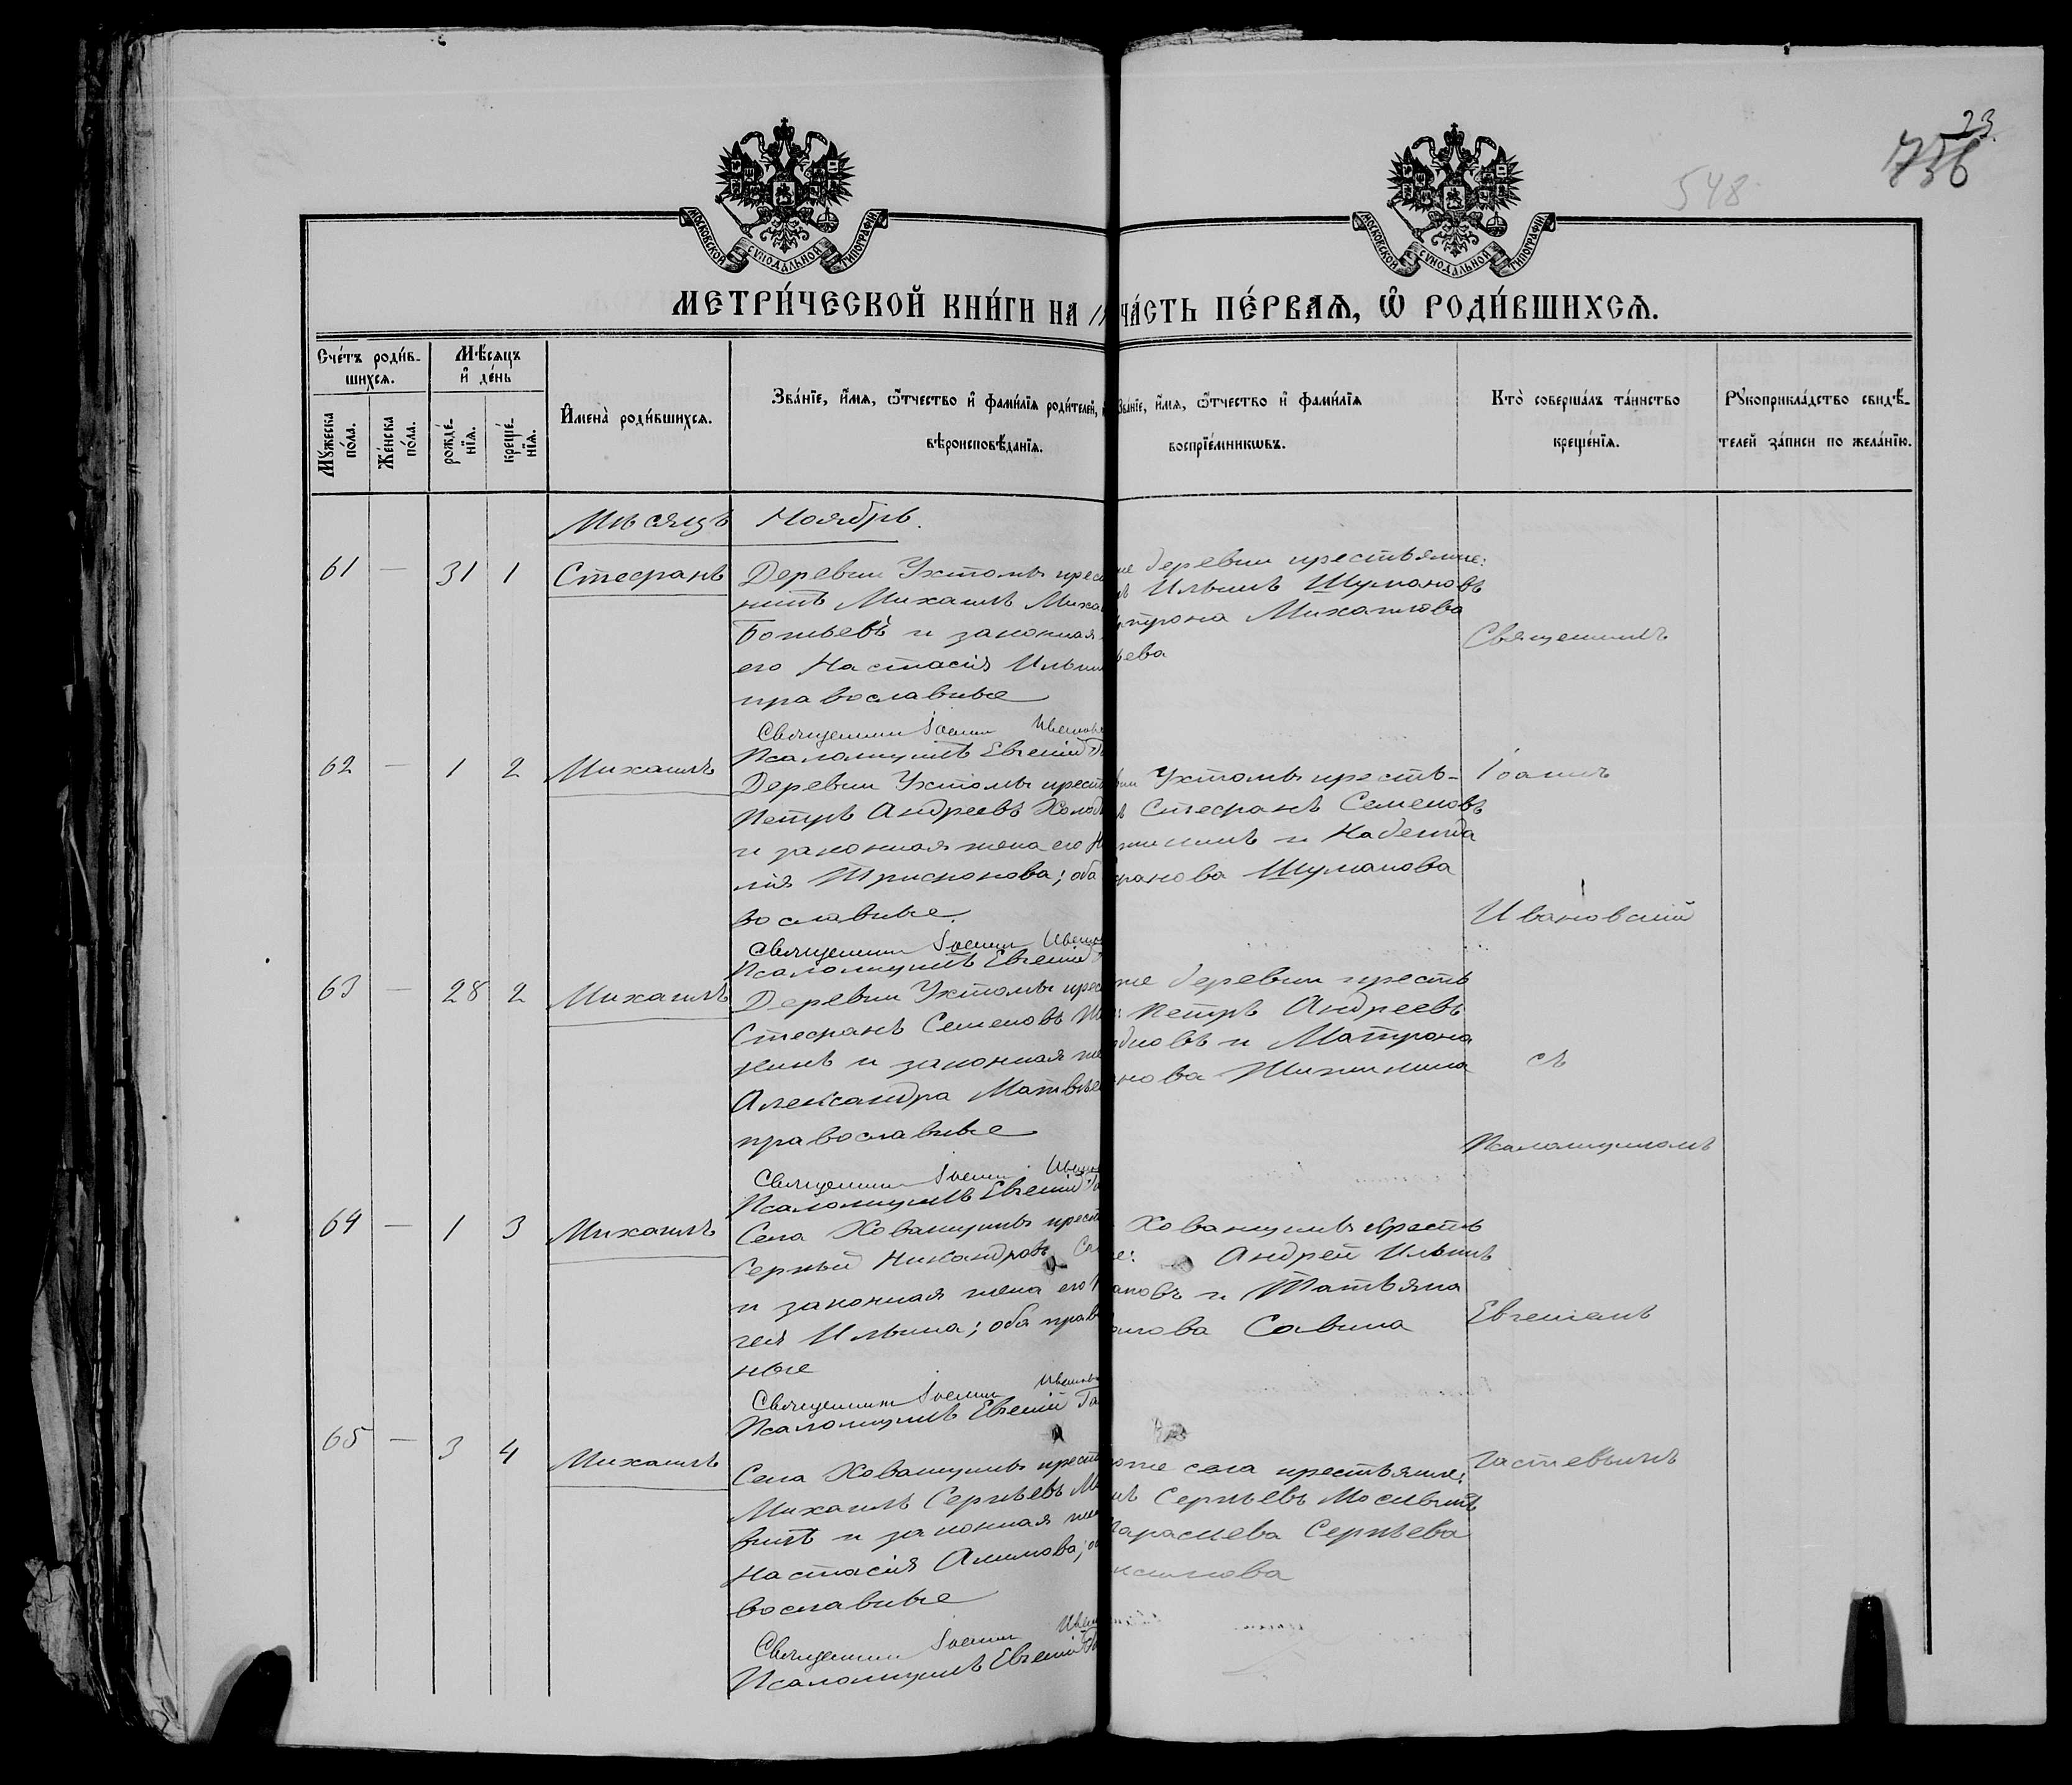 23
756
548
МОСКОВСКОЙ СУНОДАЛЬНОЙ ТИПОГРАФІИ
МОСКОВСКОЙ СУНОДАЛЬНОЙ ТИПОГРАФІИ
МЕТРИ́ЧЕСКОЙ КНИ́ГИ НА
ЧА́СТЬ ПЕ́РВАЯ, Ѡ҆ РОДИ́ВШИХСЯ.
Счетъ родив-
шихся.
Мѣсяцъ
и день
Мужеска
пола.
Женска
пола.
рожде-
нія.
креще-
нія.
Имена родившихся.
Званіе, имя, ѿчество и фамилія родителей,
вѣроисповѣданія.
Званіе, имя, ѿчество и фамилія
воспріемниковъ.
Кто совершалъ таинство
крещенія.
Рукоприкладство свидѣ-
телей записи по желанію.
Мѣсяцъ Ноябрь.
61 — 31 1 Стефанъ
Деревни Ухтомы крес
нинъ Михаилъ Миха
Батьевъ и законная
его Настасія Ильин
православные
Священник Іоанн Иванов
Псаломщикъ Евгеній
же деревни крестьяне:
Ильинъ Шумановъ
трона Михаилова
ьева
62 — 1 2 Михаилъ
Деревни Ухтомы крест
Петръ Андреевъ Холод
и законная жена его
лія Трифонова; оба
вославные.
Священник Іоанн Иванов
Псаломщикъ Евгеній
Ухтомы кресть-
Стефанъ Семеновъ
и Надежда
фанова Шуманова
63 — 28 2 Михаилъ
Деревни Ухтомы крес
Стефанъ Семеновъ
кинъ и законная же
Александра Матвѣе
православные
Священник Іоанн Иванов
Псаломщикъ Евгеній
же деревни кресть
Петръ Андреевъ
одновъ и Матрона
нова
64 — 1 3 Михаилъ
Села Хованщины крест
Сергѣй Никандровъ Са
и законная жена его
гея Ильина; оба прав
ные
Священник Іоанн Иванов
Псаломщикъ Евгеній Га
Хованщины кресть
не: Андрей Ильинъ
ановъ и Татьяна
Савина
65 — 3 4 Михаилъ
Села Хованщины крест
Михаилъ Сергѣевъ Мо
винъ и законная жен
Настасія Акимова; об
вославные
Священник Іоанн Иван
Псаломщикъ Евгеній
села крестьяне:
Сергѣевъ
Сергѣева
Священникъ
Іоаннъ
Ивановскій
съ
Псаломщикомъ
Евгеніемъ
Гастевымъ